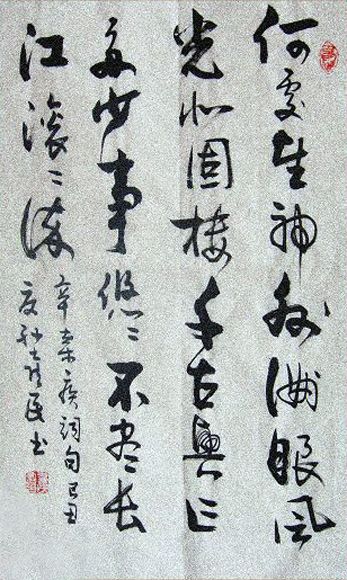 何處望神州滿眼風
光北固樓千古興亡
多少事悠〻不盡長
江滾〻流
辛棄疾詞句己丑
夏民书